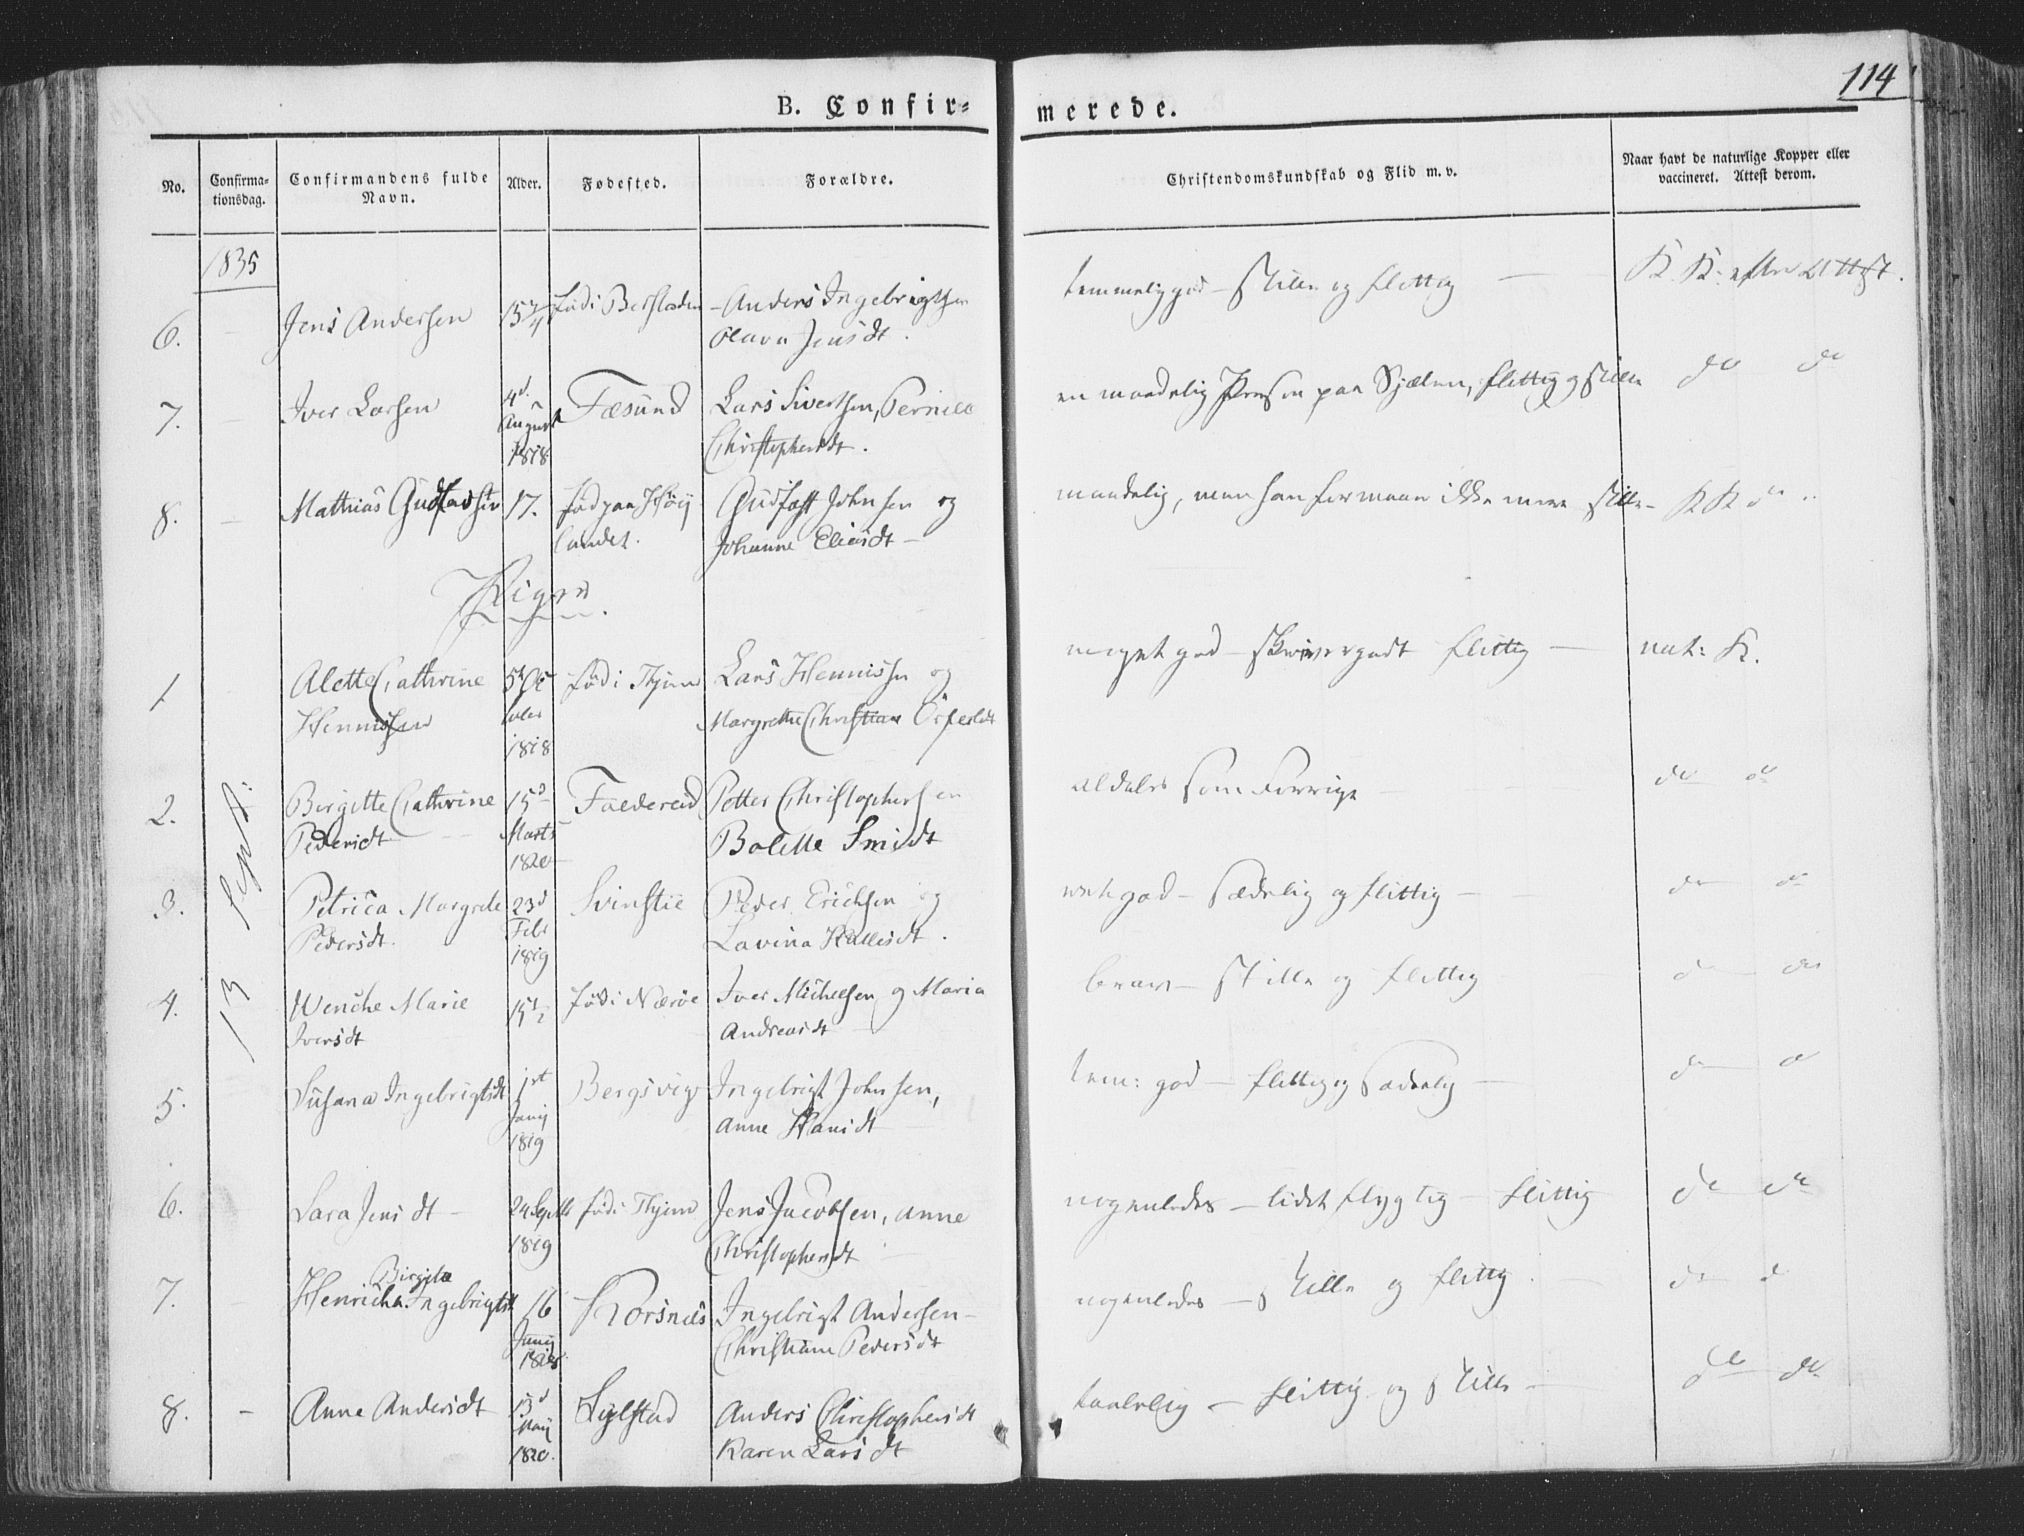 114
B. Confir=
merede.
No.
Confirma-
tionsdag.
Confirmandens fulde
Navn.
Alder.
Fødested.
Forældre.
Christendomskundskab og Flid m. v.
Naar havt de naturlige Kopper eller
vaccineret. Attest derom.
1835
6. Jens Andersen 15 3/4 fød i Anders Ingebrigtsen
Olava Jensdt.
temmelig god - stille og flittig K. K. efter Attest.
7. Iver Larsen 4d August 1818 Fæsund Lars Sivertsen, Pernille
Christophersdt.
en maadelig Person paa Sjælen, flittig og stille do do
8. Mathias 17. fød paa Høy
landet. Johnsen og
Johanne Eliasdt -
maadelig, men han formaaer ikke mere stille - K K do
Piger
1 Alette Cathrine
Hennissen 5te
1818 fød i Thjem Lars Hennissen og
Margrethe Christian
meget god - skriver godt flittig - nat: K.
2. Birgitte Cathrine
Pedersdt 15d
Marts
1820 Faedereid Petter Christophersen
Bolette Smidt
aldeles som Forrige - do do
13 Sept.
3. Petrica Margrete
Pedersdt. 23d
Feb:
1819 Svinstie Peder Erichsen og
Lavina
ret god - sædelig og flittig - do do
4. Wenche Marie
Iversdt 15 1/2 fød i Nærøe Iver Michelsen og Maria
Andreasdt
brav - stille og flittig do do
5. Susana Ingebrigtsdt 1st
Junij
1819 Bergsvig Ingebrigt Johnsen,
Anne Hansdt
tem: god - flittig og sædelig - do do
6. Sara Jensdt - 24 Septb
1819 fød i Thjem Jens Jacobsen, Anne
Christophersdt
nogenledes - lidet flygtig - flittig do do
7. Birgitta
Henricha Ingebrigtsdt 16
Junij
1818 Korsnæs Ingebrigt Andersen -
Christiana Pedersdt
nogenledes - stille og flittig. do do
8. - Anne Andersdt 13d
Maij
1820. Sylstad Anders Christophersdt
Karen Larsdt
taalelig - flittig og stille - do do